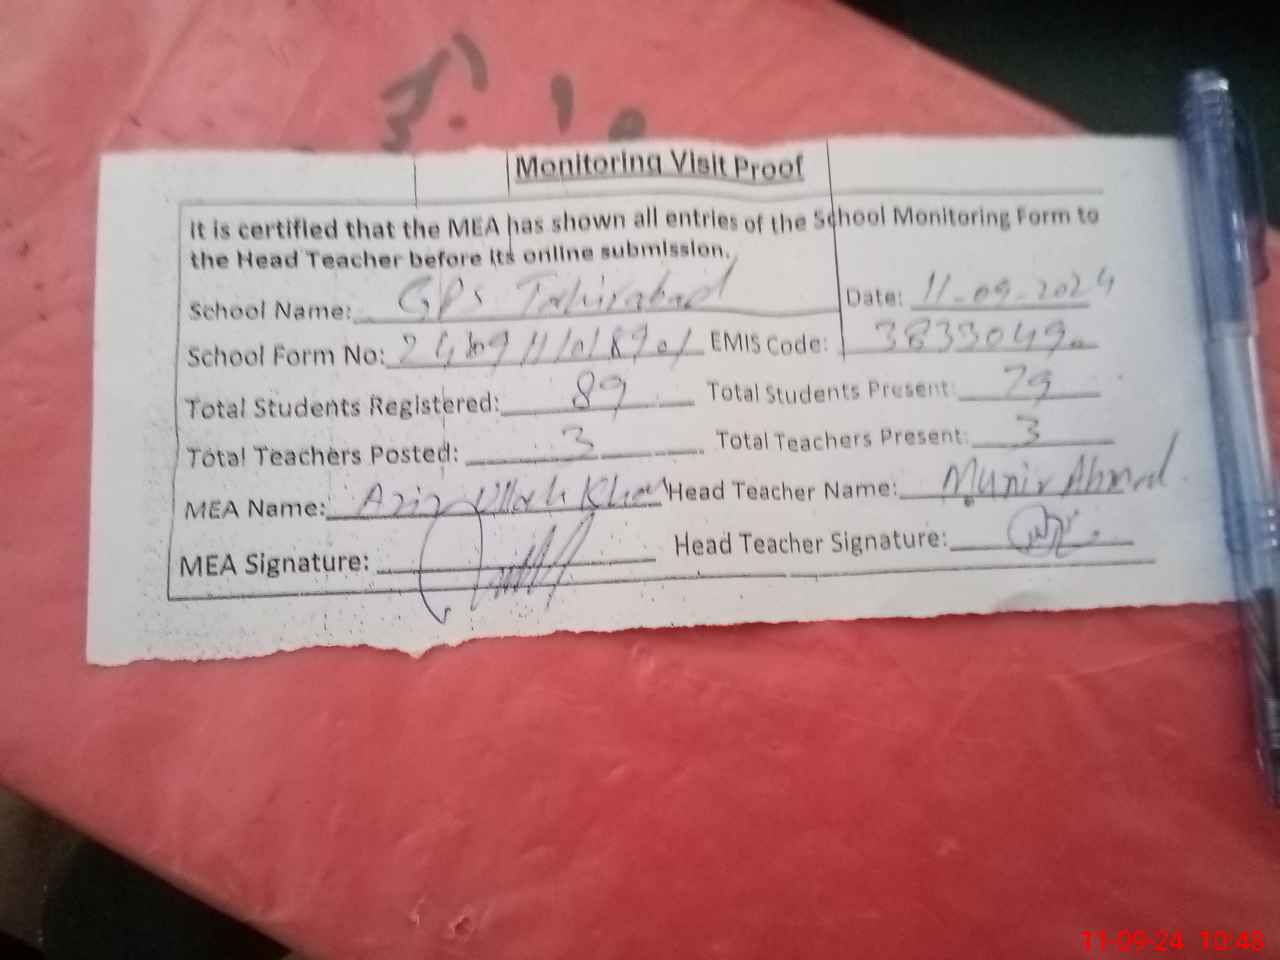 Monitoring Visit Proof
It is certified that the MEA has shown all entries of the School Monitoring Form to
the Head Teacher before its online submission.
School Name: GPS Tahirabad Date: 11-09-2024
School Form No: EMIS Code:
Total Students Registered: 89 Total Students Present: 79
Total Teachers Posted: 3 Total Teachers Present: 3
MEA Name: Aziz Ullah Khan Head Teacher Name: Munir Ahmad
MEA Signature: Head Teacher Signature:
11-09-24 10:48